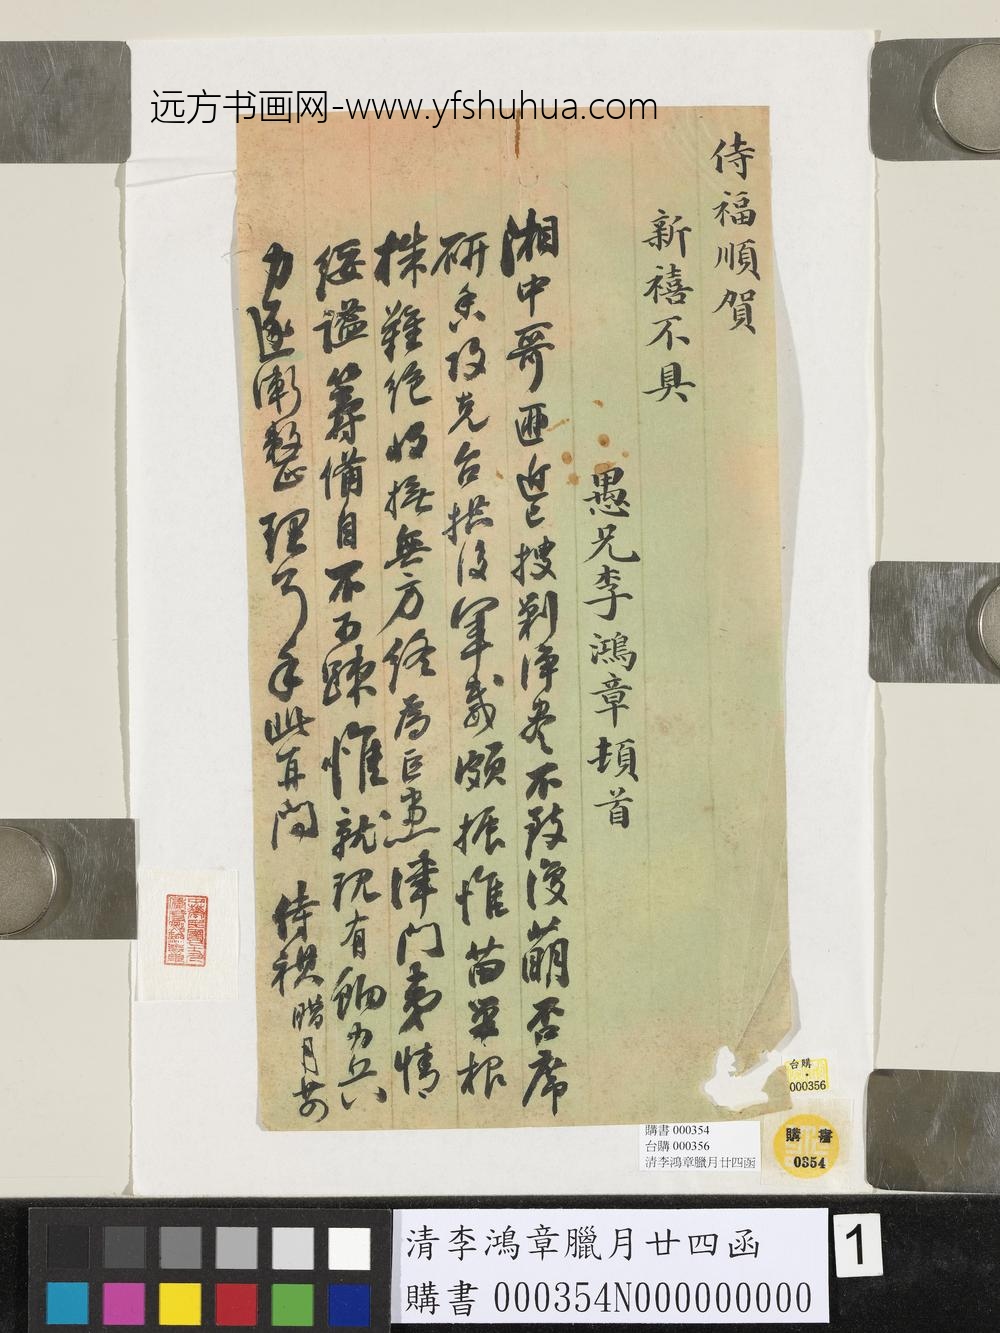 远方书画网-www.yfshuhua.com
侍福順賀
新禧不具
愚兄李鴻章頓首
湘中哥匪近已搜剿淨盡不致復萌否席
研香攻克台拱後軍威頗振惟苗巢根
株難絕收撫無方終為巨患津門夷情
綏謐籌備自不可疎惟就現有餉力兵
力逐漸整理耳手此再問 侍祺 臘月廿四
台購
000356
購書
0354
購書 000354
台購 000356
清李鴻章臘月廿四函
清李鴻章臘月廿四函
購書 000354N000000000
1